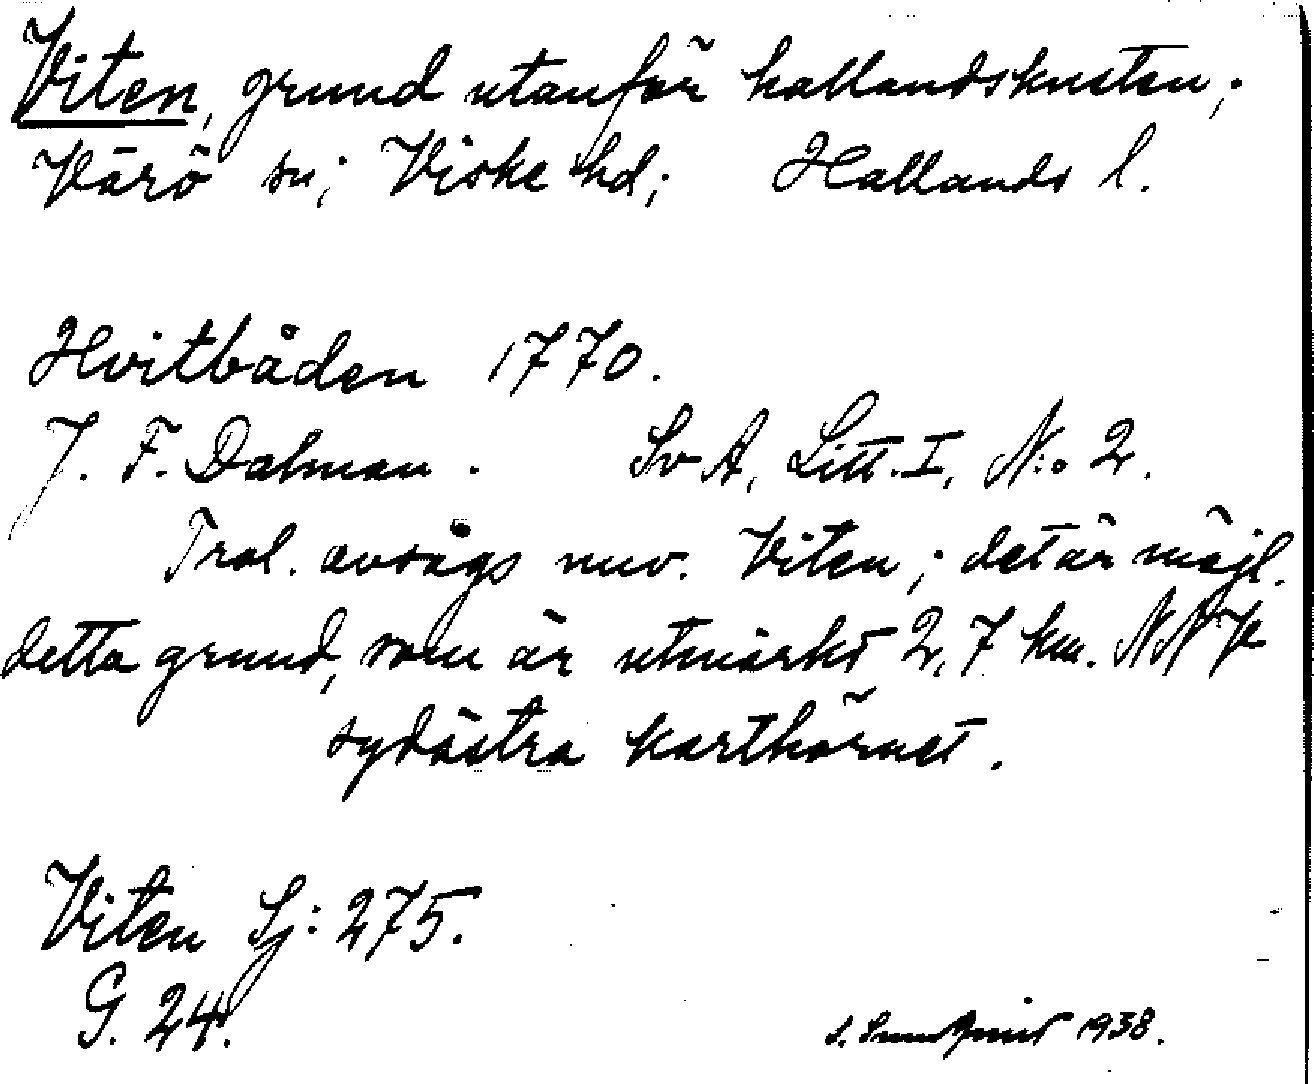 Viten, grund utanför hallandskusten;
Värö sn; Viske hd; Hallands l.
Hvitbåden 1770.
J. F. Dalman. SvA, Litt. I, N:o 2.
Trol. avsågs nuv. Viten; det är möjl.
detta grund, som är utmärkt 2,7 km. NNV
sydöstra karthörnet.
Viten Sj: 275.
G. 24.
S. Sundqvist 1938.